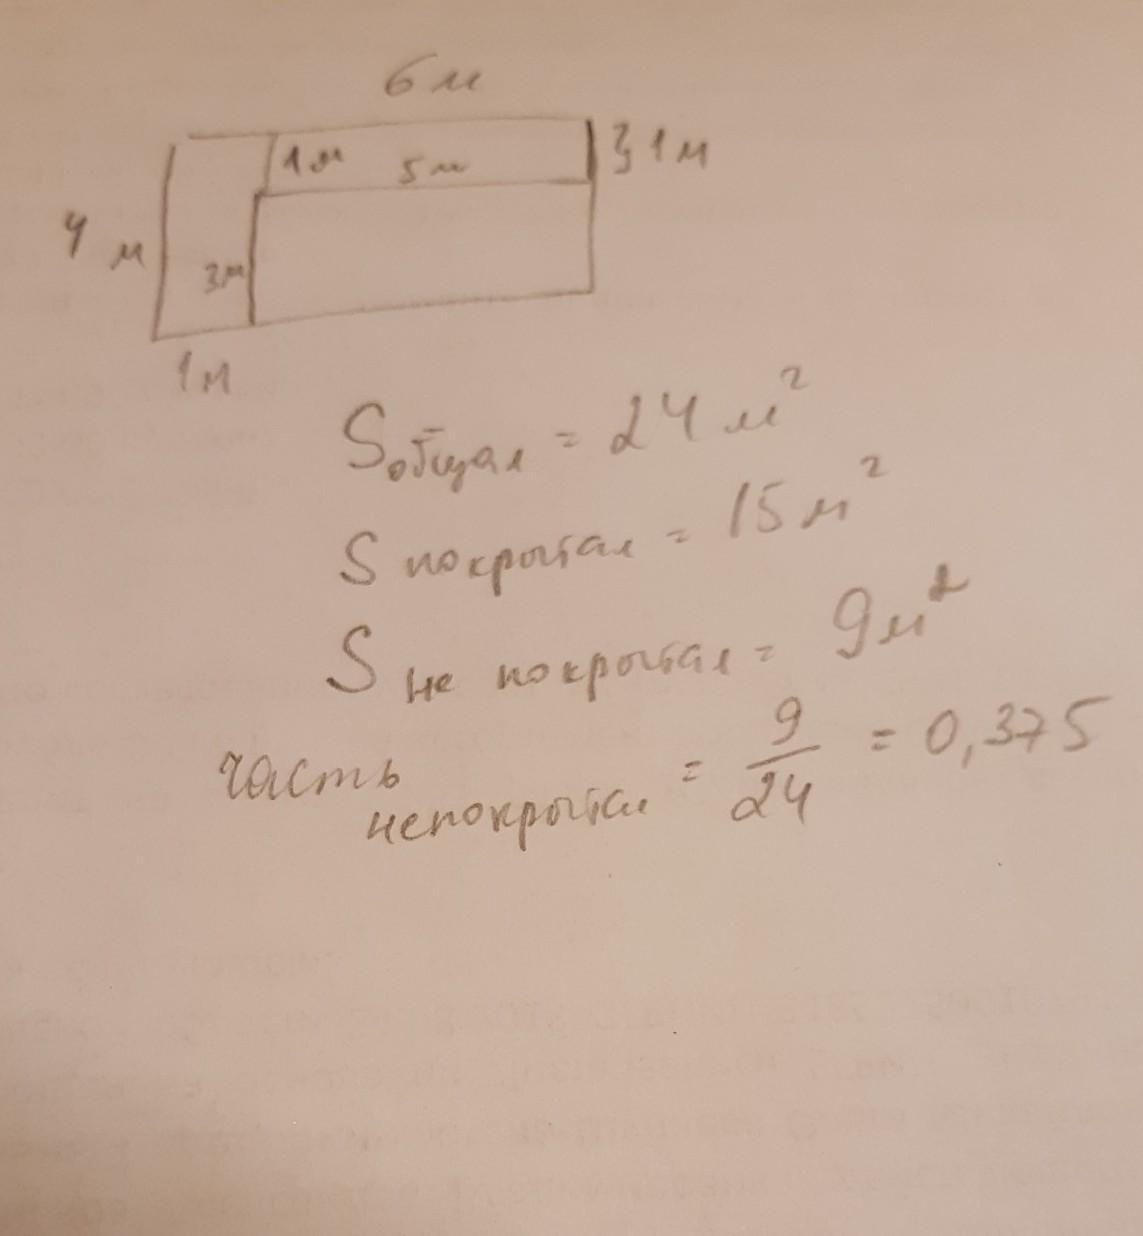 6 м
1 м
5 м
} 1 м
4 м
3 м
1 м
S общая = 24 м²
S покрытая = 15 м²
S не покрытая = 9 м²
часть непокрытая = 9/24 = 0,375